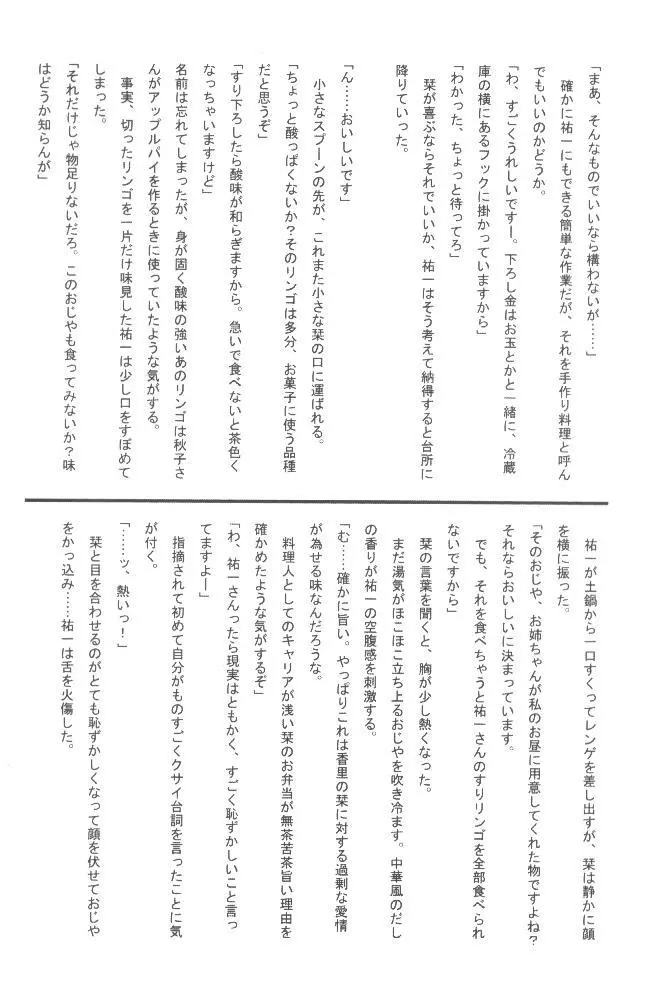 「まあ、そんなものでいいなら構わないが……」
　確かに祐一にもできる簡単な作業だが、それを手作り料理と呼ん
でもいいのかどうか。
「わ、すごくうれしいですー。下ろし金はお玉とかと一緒に、冷蔵
庫の横にあるフックに掛かっていますから」
「わかった、ちょっと待ってろ」
　栞が喜ぶならそれでいいか、祐一はそう考えて納得すると台所に
降りていった。
「ん……おいしいです」
　小さなスプーンの先が、これまた小さな栞の口に運ばれる。
「ちょっと酸っぱくないか？そのリンゴは多分、お菓子に使う品種
だと思うぞ」
「すり下ろしたら酸味が和らぎますから。急いで食べないと茶色く
なっちゃいますけど」
名前は忘れてしまったが、身が固く酸味の強いあのリンゴは秋子さ
んがアップルパイを作るときに使っていたような気がする。
　事実、切ったリンゴを一片だけ味見した祐一は少し口をすぼめて
しまった。
「それだけじゃ物足りないだろ。このおじやも食ってみないか？味
はどうか知らんが」
　祐一が土鍋から一口すくってレンゲを差し出すが、栞は静かに顔
を横に振った。
「そのおじや、お姉ちゃんが私のお昼に用意してくれた物ですよね？
それならおいしいに決まっています。
　でも、それを食べちゃうと祐一さんのすりリンゴを全部食べられ
ないですから」
　栞の言葉を聞くと、胸が少し熱くなった。
　まだ湯気がほこほこ立ち上るおじやを吹き冷ます。中華風のだし
の香りが祐一の空腹感を刺激する。
「む……確かに旨い。やっぱりこれは香里の栞に対する過剰な愛情
が為せる味なんだろうな。
　料理人としてのキャリアが浅い栞のお弁当が無茶苦茶旨い理由を
確かめたような気がするぞ」
「わ、祐一さんったら現実はともかく、すごく恥ずかしいこと言っ
てますよー」
　指摘されて初めて自分がものすごくクサイ台詞を言ったことに気
が付く。
「……ッ、熱いっ！」
　栞と目を合わせるのがとても恥ずかしくなって顔を伏せておじや
をかっ込み……祐一は舌を火傷した。